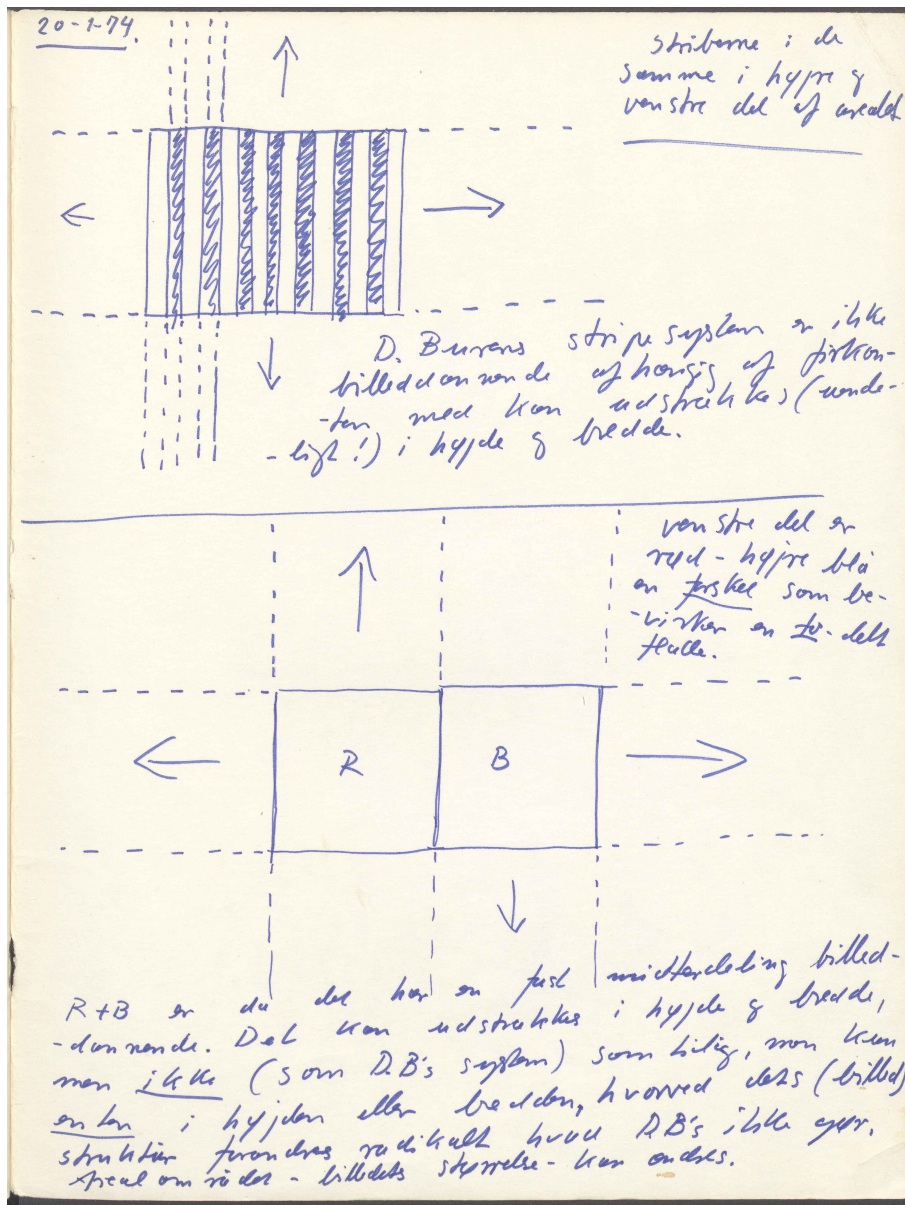 20-1-74.
striberne i de
samme i højre &
venstre del af arealet
D. Burens stripe system er ikke
billeddannende afhængig af firkan-
-ten med kan udstrækkes (uende-
-ligt!) i højde & bredde.
venstre del er
rød - højre blå
en forskel som be-
-virker en to-delt
flade.
R B
R+B er da det har en fast midterdeling billed-
-dannende. Det kan udstrækkes i højde & bredde,
men ikke (som D.B's system) samtidig, men kun
enten i højden eller bredden, hvorved dets (billed)
struktur forandres radikalt hvad D.B's ikke gør.
Arealområdet - billedets størrelse - kan ændres.